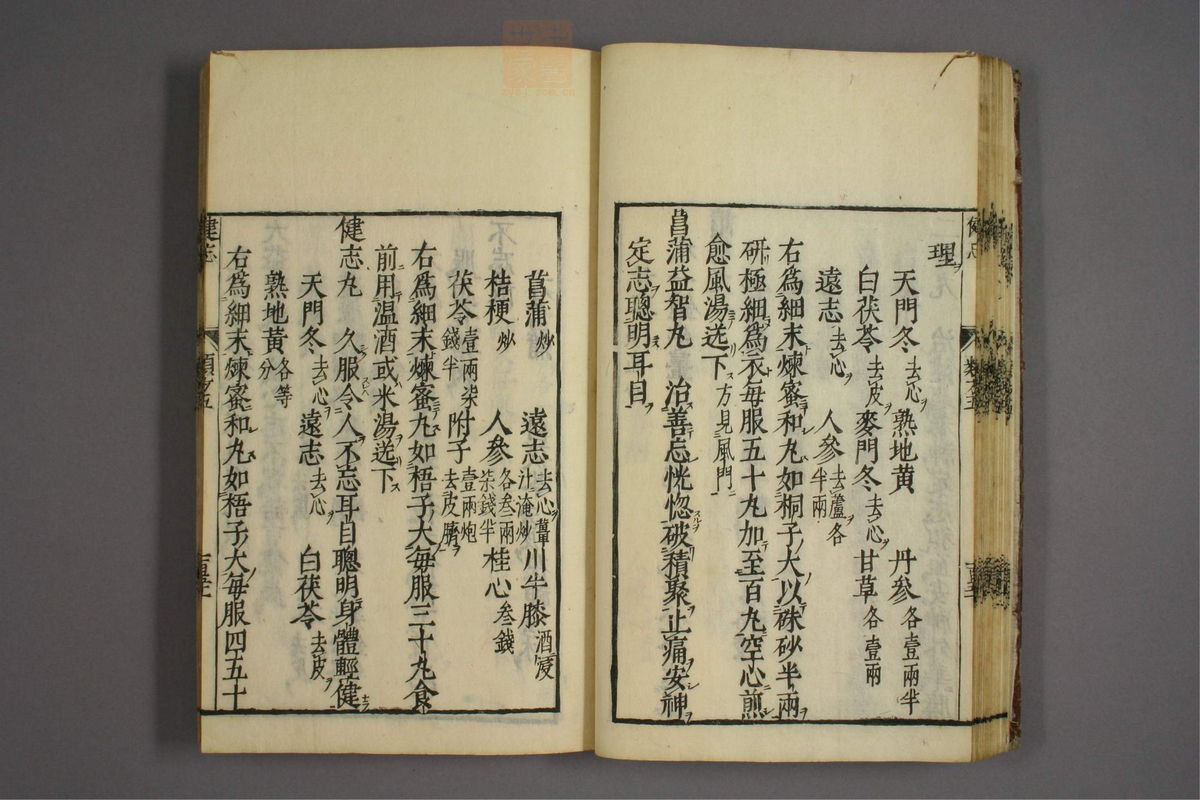 理
天門冬 去心 熟地黄 丹参 各壹兩半
白茯苓 去皮 麥門冬 去心 甘草 各壹兩
遠志 去心 人參 去蘆各半兩
右爲細末煉蜜和丸如桐子大以硃砂半兩
研極細爲衣每服五十丸加至百丸空心煎
愈風湯送下 方見風門
菖蒲益智丸 治善忘恍惚破積聚止痛安神
定志聰明耳目
菖蒲 炒 遠志 去心薑汁淹炒 川牛膝 酒浸
桔梗 炒 人參 各叁兩柒錢半 桂心 叁錢
茯苓 壹兩柒錢半 附子 壹兩炮去皮臍
右爲細末煉蜜丸如梧子大每服三十丸食
前用温酒或米湯送下
健志丸 久服令人不忘耳目聰明身體輕健
天門冬 去心 遠志 去心 白茯苓 去皮
熟地黄 各等分
右爲細末煉蜜和丸如梧子大每服四五十
健志